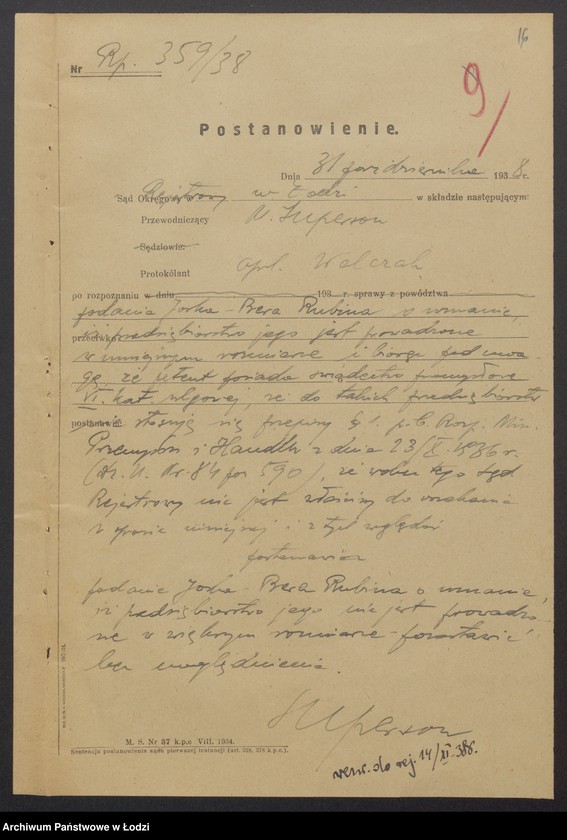 16
Nr Rp. 359/38
9/
Postanowienie.
Dnia 31 października 1938 r.
Sąd Okręgowy w Rejestrowy w Łodzi w składzie następującym:
Przewodniczący U. Superson
Sędziowie:
Protokólant apl. Walczak
po rozpoznaniu w dniu 193 r. sprawy z powództwa
podania Joska-Bera Rubina o uznanie,
przeciwko iż przedsiębiorstwo jego jest prowadzone
w mniejszym rozmiarze i biorąc pod uwa-
gę, że petent posiada świadectwo przemysłowe
VI. kat. ulgowej, że do takich przedsiębiorstw
postanowił: stosują się przepisy § 1. p. C. Rozp. Min.
Przemysłu i Handlu z dnia 23/X. 1936 r.
(Dz. U. Nr. 84 poz 590), że wobec tego Sąd
Rejestrowy nie jest właściwy do orzekania
w sprawie niniejszej i z tych względów
postanawia:
podanie Joska-Bera Rubina o uznanie,
iż przedsiębiorstwo jego nie jest prowadzo-
ne w większym rozmiarze - pozostawić
bez uwzględnienia.
Superson
M. S. Nr 37 k.p.c VIII. 1934.
Sentencja postanowienia sądu pierwszej instancji (art. 328, 378 k.p.c.).
do rej. 14/XI.38r.
Archiwum Państwowe w Łodzi